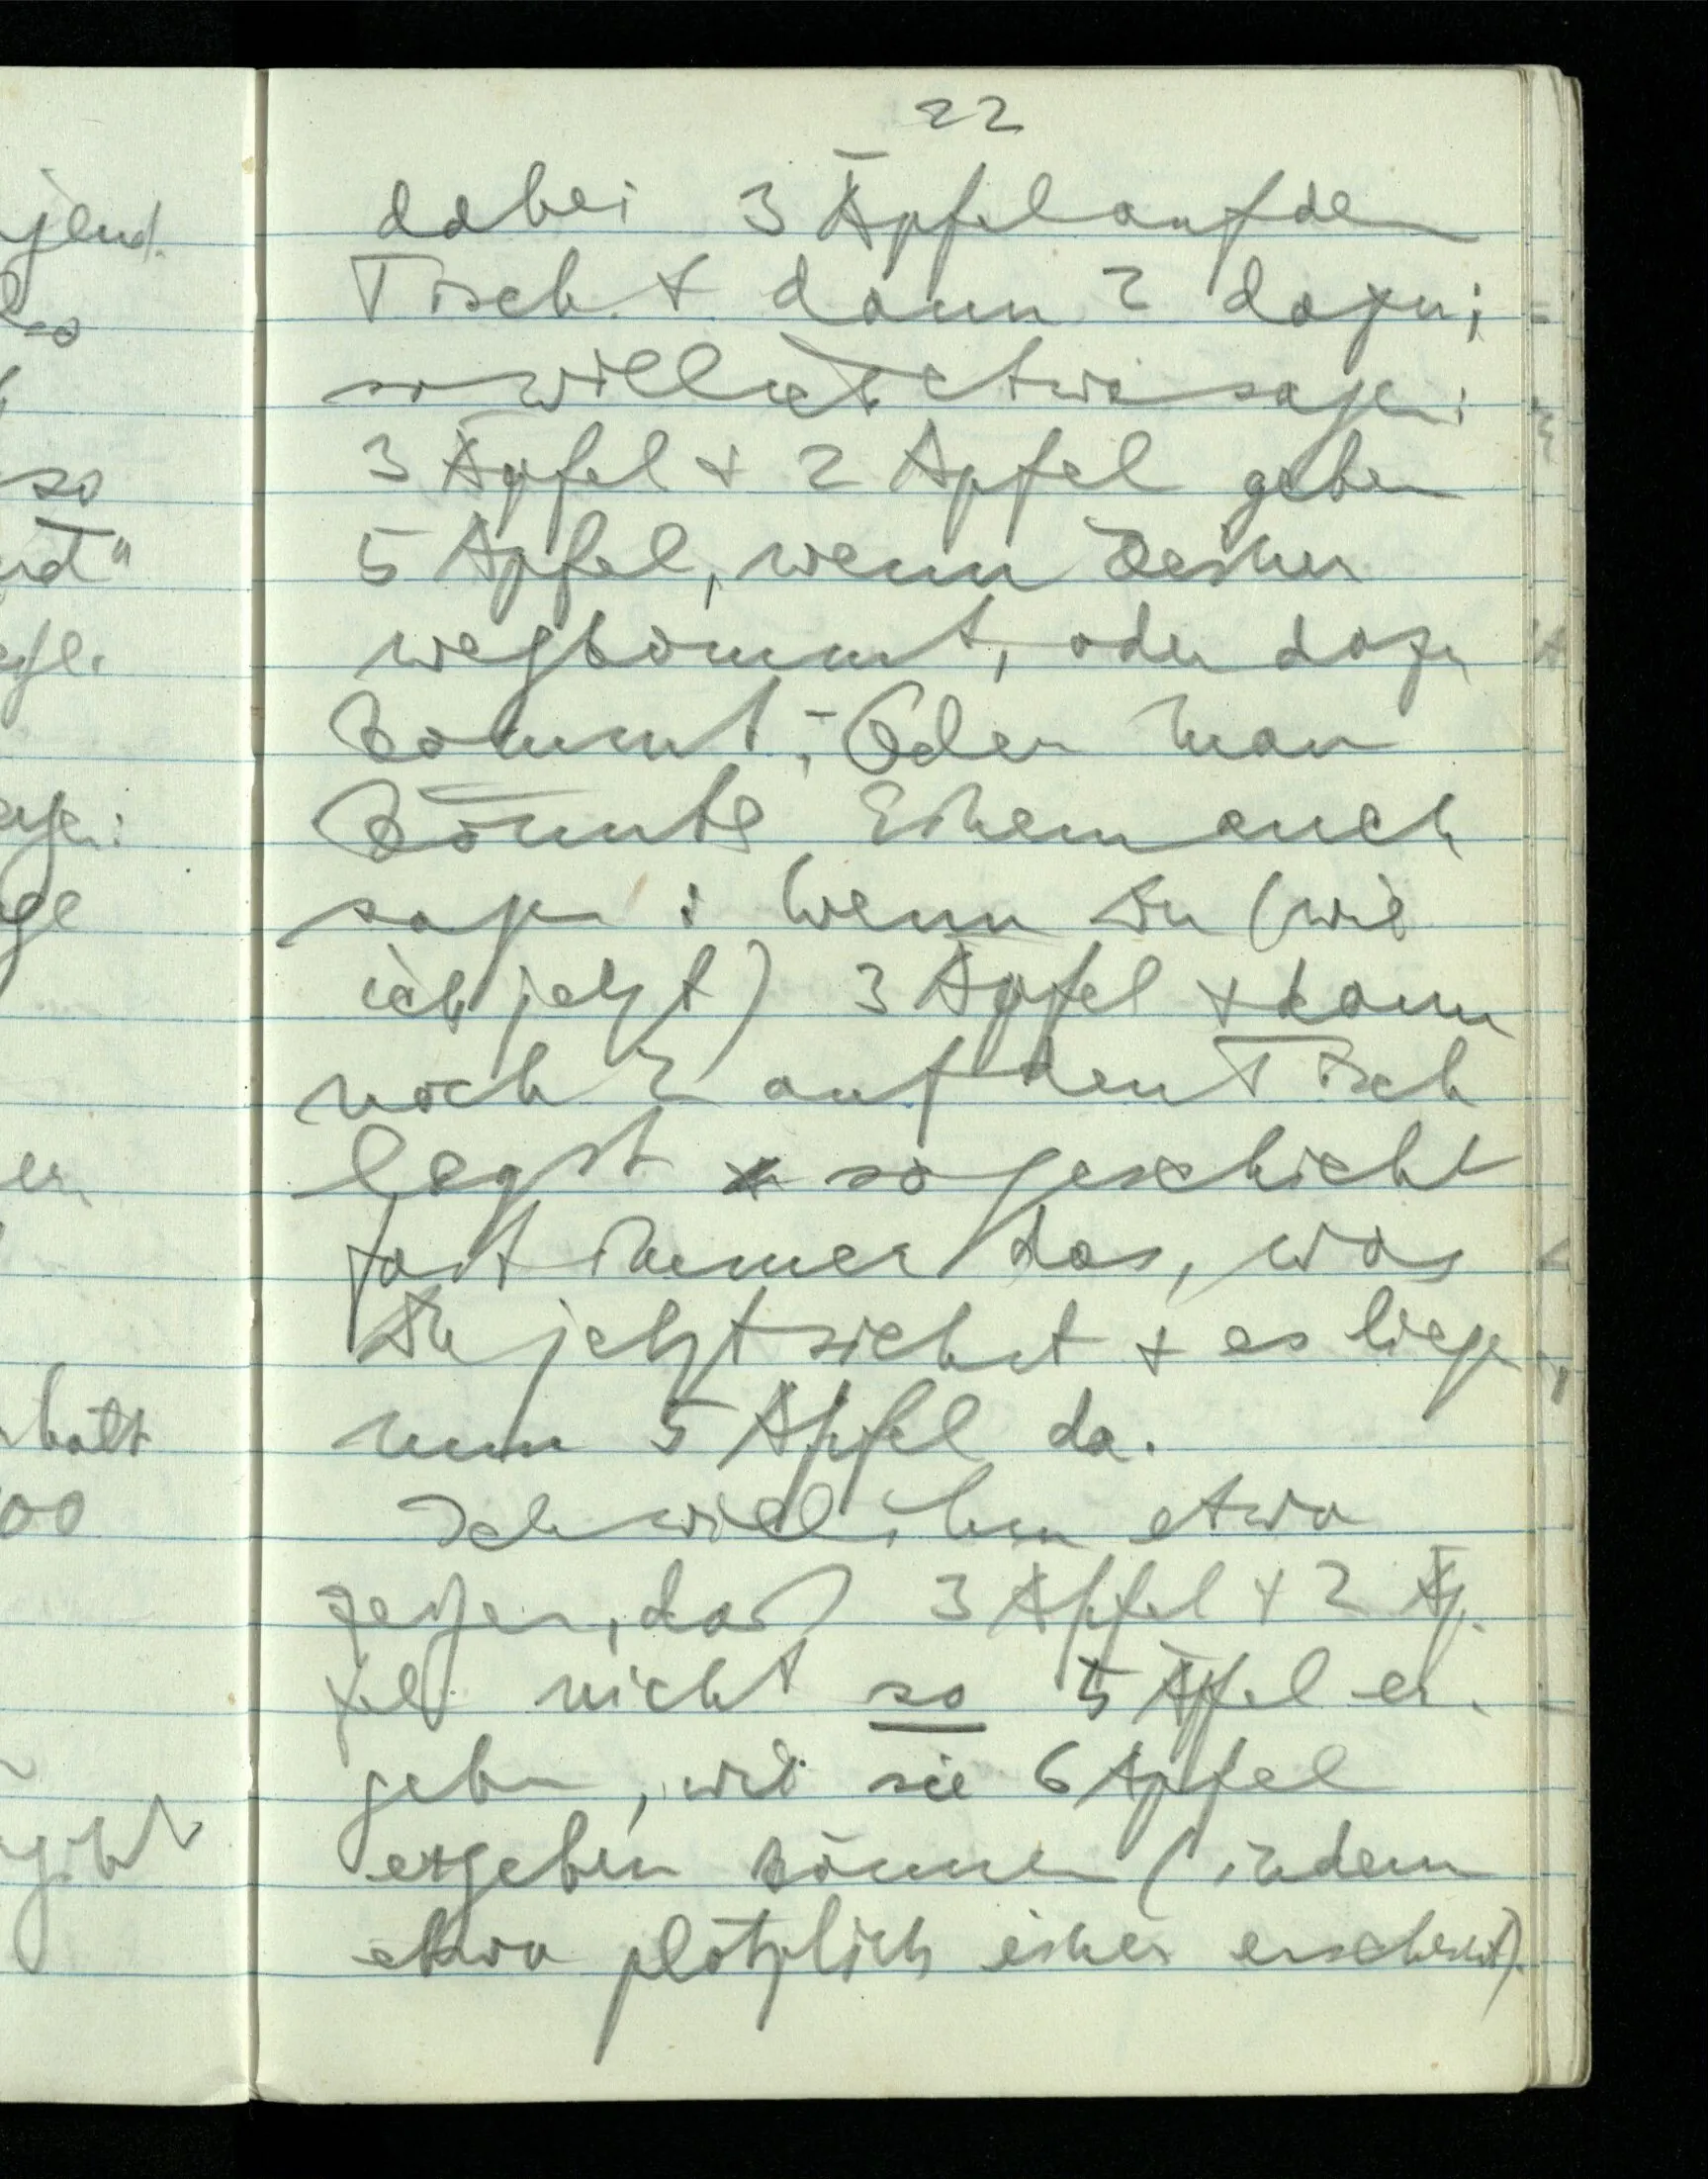 22
dabei 3 Äpfel auf den
Tisch & dann 2 dazu;
so will ich etwa sagen:
3 Äpfel & 2 Äpfel geben
5 Äpfel, wenn keiner
wegkommt, oder dazu
kommt; – Oder man
könnte Einem auch
sagen: wenn Du (wie
ich jetzt) 3 Äpfel & dann
noch 2 auf den Tisch
legst so geschieht
fast immer das, was
Du jetzt siehst & es liegen
nun 5 Äpfel da.
Ich will ihm etwa
zeigen, daß 3 Äpfel & 2 Äp-
fel nicht so 5 Äpfel er-
geben, wie sie 6 Äpfel
ergeben können (indem
etwa plötzlich einer erscheint).
so